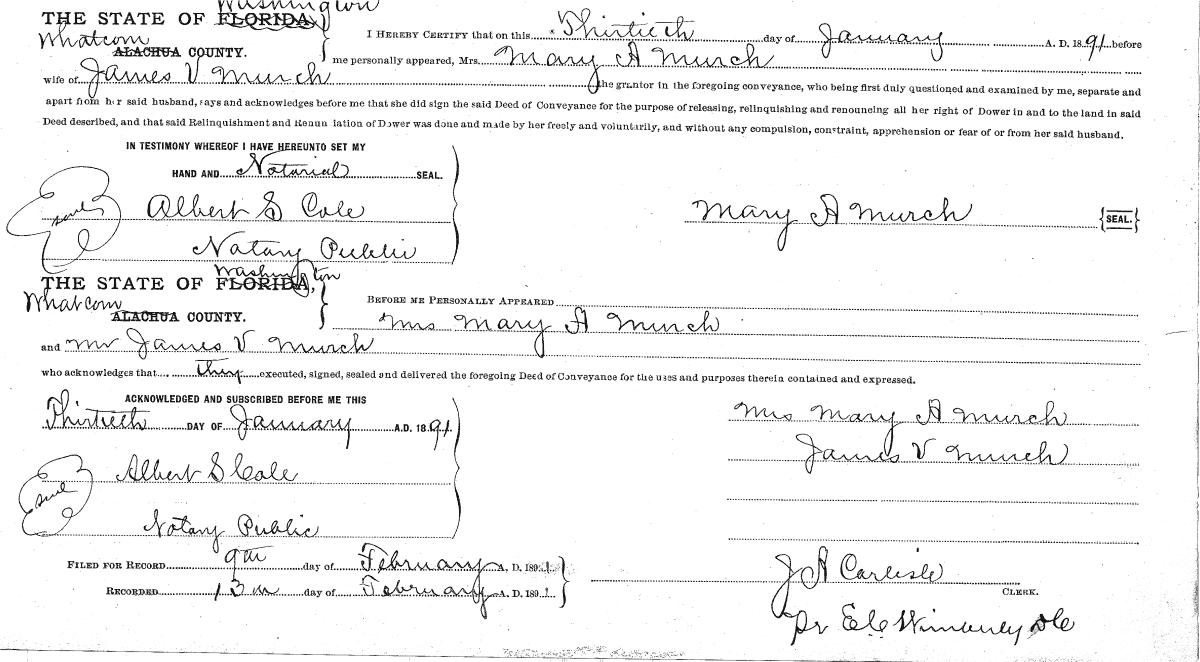 Washington
THE STATE OF FLORIDA,
Whatcom
ALACHUA COUNTY.
I HEREBY CERTIFY that on this Thirtieth day of January A. D. 1891 before
me personally appeared, Mrs. Mary A Murch
wife of James V Murch the grantor in the foregoing conveyance, who being first duly questioned and examined by me, separate and
apart from her said husband, says and acknowledges before me that she did sign the said Deed of Conveyance for the purpose of releasing, relinquishing and renouncing all her right of Dower in and to the land in said
Deed described, and that said Relinquishment and Renun iation of Dower was done and made by her freely and voluntarily, and without any compulsion, constraint, apprehension or fear of or from her said husband.
IN TESTIMONY WHEREOF I HAVE HEREUNTO SET MY
HAND AND Notarial SEAL.
Seal Albert S Cole
Mary A Murch {SEAL.}
Notary Public
Washington
THE STATE OF FLORIDA,
Whatcom
ALACHUA COUNTY.
BEFORE ME PERSONALLY APPEARED
Mrs Mary A Murch
and Mr James V Murch
who acknowledges that they executed, signed, sealed and delivered the foregoing Deed of Conveyance for the uses and purposes therein contained and expressed.
ACKNOWLEDGED AND SUBSCRIBED BEFORE ME THIS
Thirtieth DAY OF January A.D. 1891.
Mrs Mary A Murch
James V Murch
Seal Albert S Cole
Notary Public
FILED FOR RECORD 9th day of February A. D. 1891.
RECORDED 13th day of February A. D. 1891.
J A Carlisle
CLERK.
Pr Wimberley DC